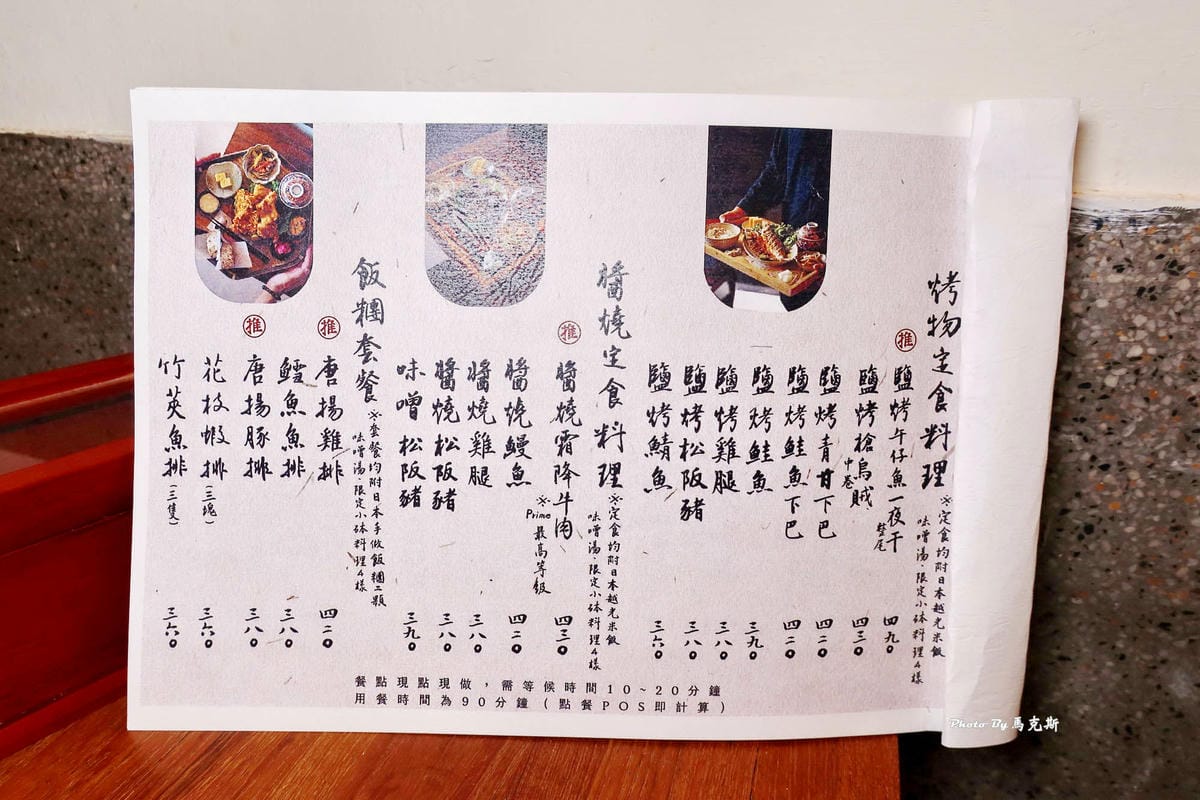 烤物定食料理
※定食均附日本越光米飯
味噌湯·限定小缽料理4樣
推
鹽烤午仔魚一夜干
整尾
四九〇
鹽烤槍烏賊
中卷
四三〇
鹽烤青甘下巴
四二〇
鹽烤鮭魚下巴
四二〇
鹽烤鮭魚
三九〇
鹽烤雞腿
三八〇
鹽烤松阪豬
三八〇
鹽烤鯖魚
三六〇
醬燒定食料理
※定食均附日本越光米飯
味噌湯·限定小缽料理4樣
推
醬燒霜降牛肉
※Prime最高等級
四三〇
醬燒鰻魚
四二〇
醬燒雞腿
三八〇
醬燒松阪豬
三八〇
味噌松阪豬
三九〇
飯糰套餐
※套餐均附日本手做飯糰二顆
味噌湯·限定小缽料理4樣
推
唐揚雞排
四二〇
鱈魚魚排
三八〇
推
唐揚豚排
三八〇
花枝蝦排(三塊)
三六〇
竹莢魚排(三隻)
三六〇
餐點現點現做，需等候時間10~20分鐘
用餐時間為90分鐘(點餐POS即計算)
Photo By 馬克斯